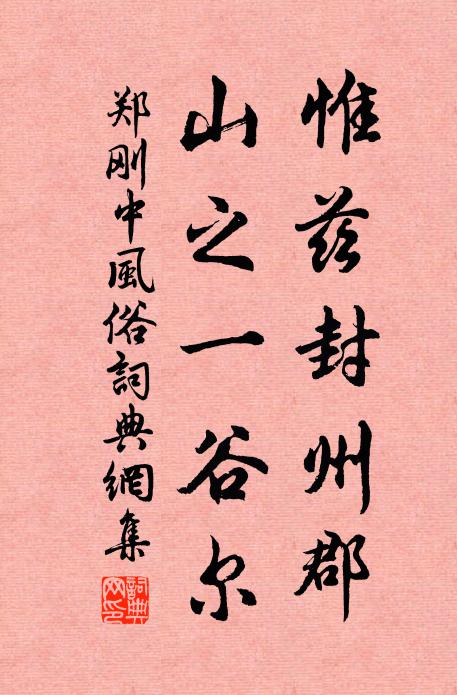 惟兹封州郡
山之一谷尔
郑刚中風俗詞典網集
詞典网印